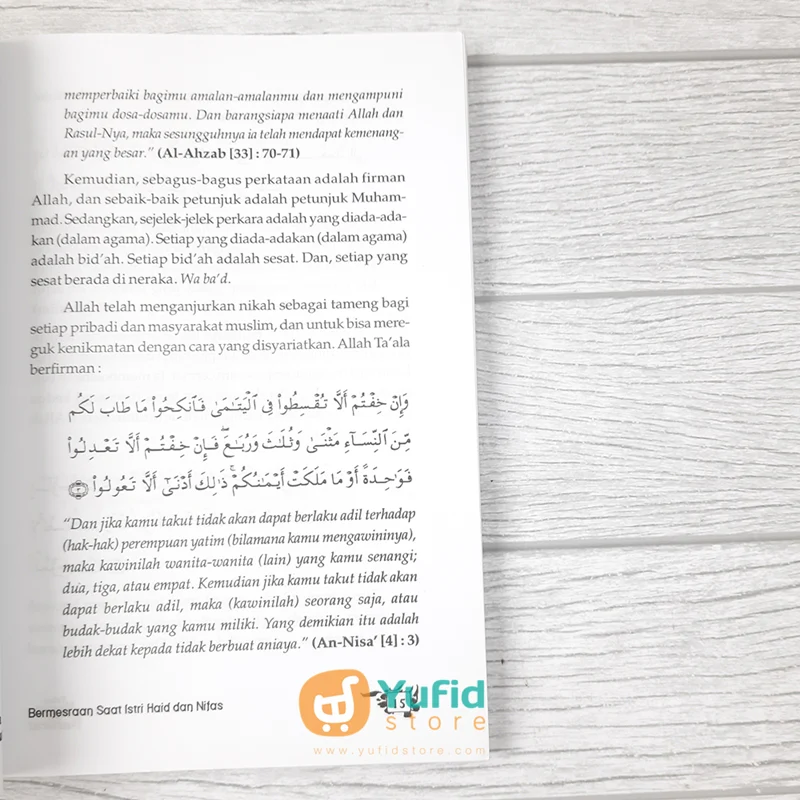 memperbaiki bagimu amalan-amalanmu dan mengampuni
bagimu dosa-dosamu. Dan barangsiapa menaati Allah dan
Rasul-Nya, maka sesungguhnya ia telah mendapat kemenang-
an yang besar.” (Al-Ahzab [33] : 70-71)
Kemudian, sebagus-bagus perkataan adalah firman
Allah, dan sebaik-baik petunjuk adalah petunjuk Muham-
mad. Sedangkan, sejelek-jelek perkara adalah yang diada-ada-
kan (dalam agama). Setiap yang diada-adakan (dalam agama)
adalah bid’ah. Setiap bid’ah adalah sesat. Dan, setiap yang
sesat berada di neraka. Wa ba’d.
Allah telah menganjurkan nikah sebagai tameng bagi
setiap pribadi dan masyarakat muslim, dan untuk bisa mere-
guk kenikmatan dengan cara yang disyariatkan. Allah Ta’ala
berfirman :
وَإِنْ خِفْتُمْ أَلَّا تُقْسِطُوا۟ فِى ٱلْيَتَـٰمَىٰ فَٱنكِحُوا۟ مَا طَابَ لَكُم
مِّنَ ٱلنِّسَآءِ مَثْنَىٰ وَثُلَـٰثَ وَرُبَـٰعَ ۖ فَإِنْ خِفْتُمْ أَلَّا تَعْدِلُوا۟
فَوَٰحِدَةً أَوْ مَا مَلَكَتْ أَيْمَـٰنُكُمْ ۚ ذَٰلِكَ أَدْنَىٰٓ أَلَّا تَعُولُوا۟ ۝٣
“Dan jika kamu takut tidak akan dapat berlaku adil terhadap
(hak-hak) perempuan yatim (bilamana kamu mengawininya),
maka kawinilah wanita-wanita (lain) yang kamu senangi;
dua, tiga, atau empat. Kemudian jika kamu takut tidak akan
dapat berlaku adil, maka (kawinilah) seorang saja, atau
budak-budak yang kamu miliki. Yang demikian itu adalah
lebih dekat kepada tidak berbuat aniaya.” (An-Nisa’ [4] : 3)
Bermesraan Saat Istri Haid dan Nifas
Yufid
store
www.yufidstore.com